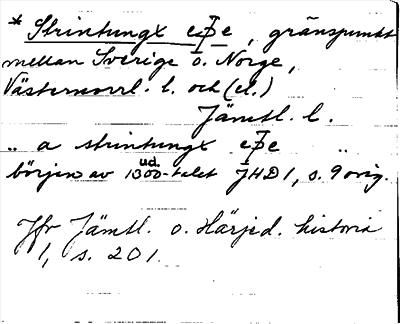 * Strintungx efe, gränspunkt
mellan Sverige o. Norge,
Västernorrl. l. och (el.)
Jämtl. l.
„ a strintungx efe „
början av 1300-talet JHD 1, s. 9 orig.
ud.
Jfr Jämtl. o. Härjed. historia
1, s. 201.